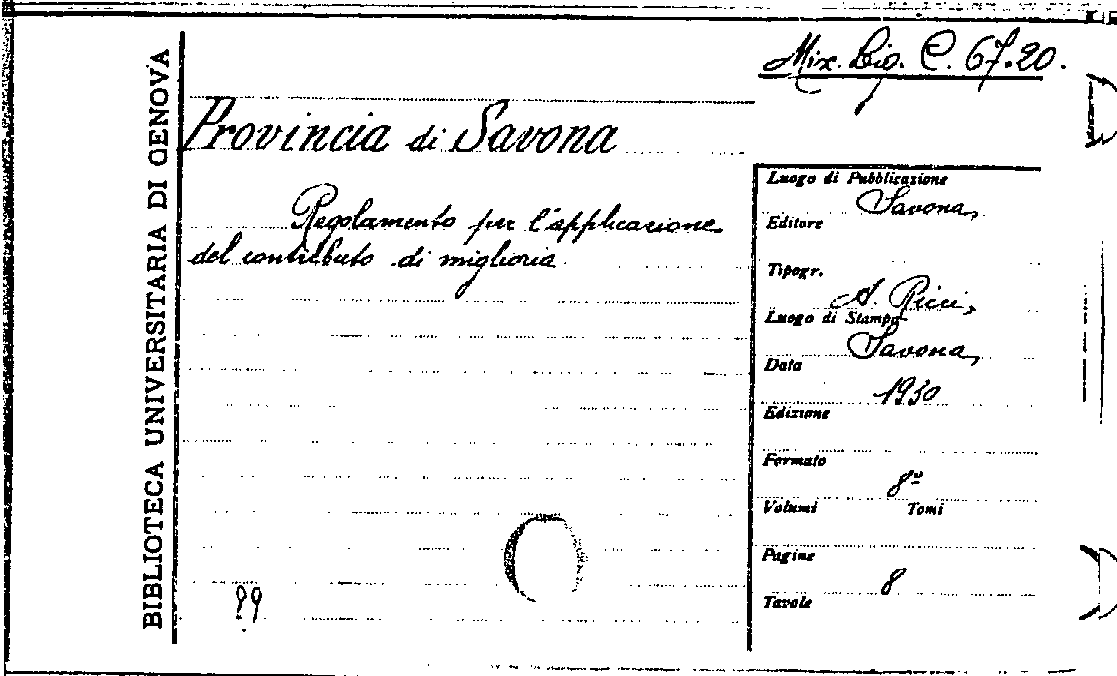 BIBLIOTECA UNIVERSITARIA DI GENOVA
Mix. Lig. C. 67.20.
Provincia di Savona
Regolamento per l'applicazione
del contributo di miglioria
Luogo di Pubblicazione
Savona,
Editore
Tipogr.
A. Ricci,
Luogo di Stampa
Savona,
Data
1930
Edizione
Formato
8º
Volumi Tomi
Pagine
8
Tavole